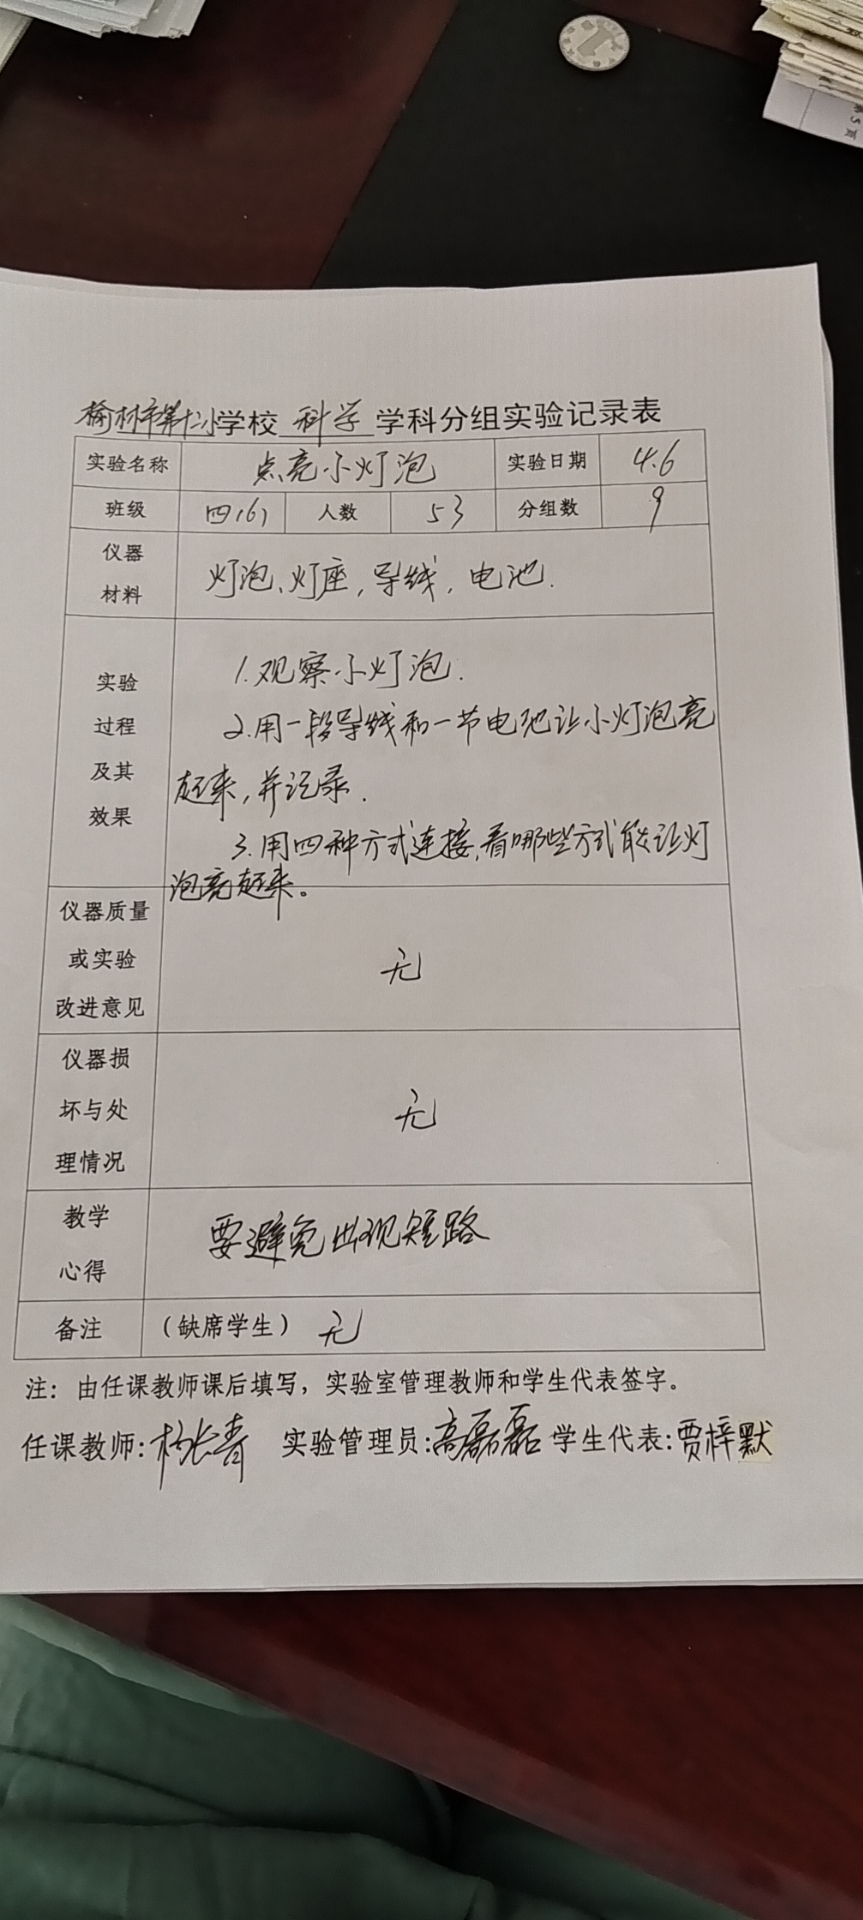 榆林市第十二小学校 科学 学科分组实验记录表
实验名称 点亮小灯泡 实验日期 4.6
班级 四(6) 人数 53 分组数 9
仪器
材料
灯泡、灯座，导线，电池.
实验
过程
及其
效果
1.观察小灯泡.
2.用一段导线和一节电池让小灯泡亮
起来，并记录.
3.用四种方式连接，看哪些方式能让灯
泡亮起来。
仪器质量
或实验
改进意见
无
仪器损
坏与处
理情况
无
教学
心得
要避免出现短路
备注 （缺席学生） 无
注：由任课教师课后填写，实验室管理教师和学生代表签字。
任课教师:杨长青 实验管理员:高磊磊 学生代表:贾梓默
第5页